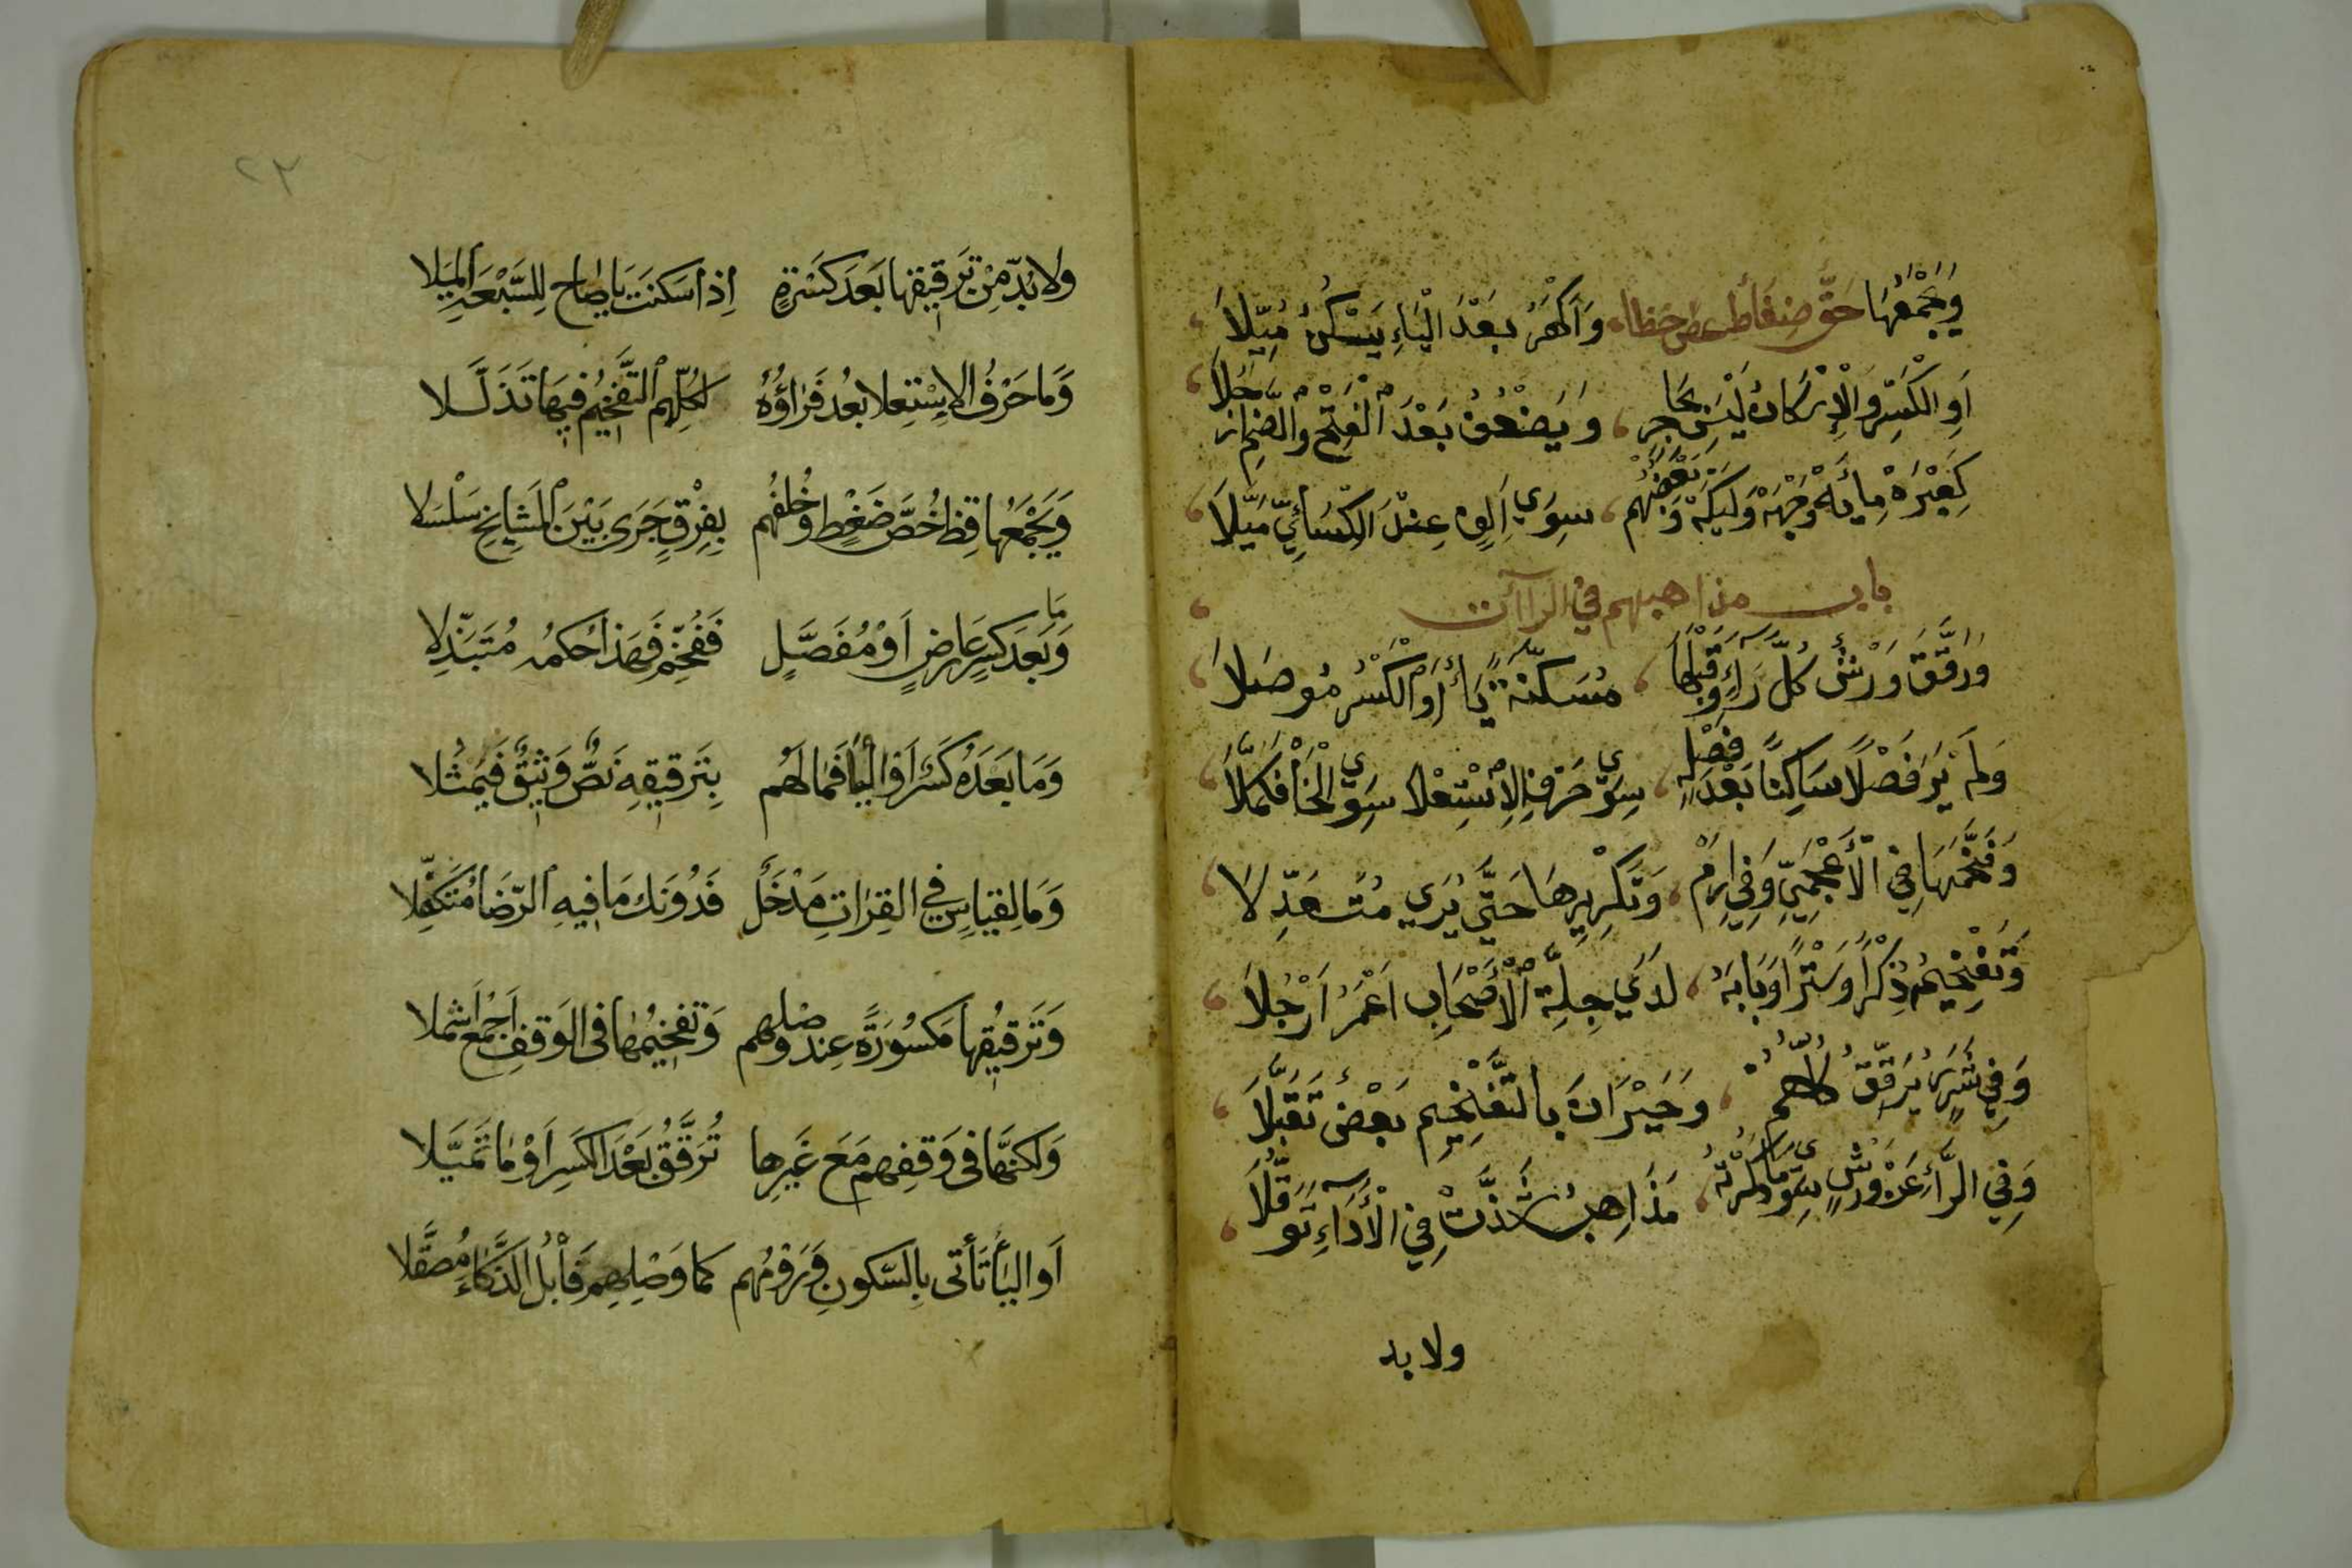 وَيَجْمَعُهَا حَقٌّ ضِغَاطُ عَصٍ خَظَا وَأَكْهَرُ بَعْدَ الْيَاءِ يَسْكُنُ مُيِّلَا
أَوِ الْكَسْرِ وَالْإِسْكَانُ لَيْسَ بِحَاجِزٍ وَيَضْعُفُ بَعْدَ الْفَتْحِ وَالضَّمِّ أَرْجُلَا
كَعِبْرَهْ مِائَهْ وِجْهَهْ وَلَيْكَهْ وَبَعْضُهُمْ سِوَى أَلِفٍ عِنْدَ الْكِسَائِيِّ مَيَّلَا
باب مذاهبهم في الراآت
وَرَقَّقَ وَرْشٌ كُلَّ رَاءٍ وَقَبْلَهَا مُسَكَّنَةً يَاءٌ أَوِ الْكَسْرُ مُوصَلَا
وَلَمْ يَرَ فَصْلًا سَاكِنًا بَعْدَ كَسْرَةٍ سِوَى حَرْفِ الْاِسْتِعْلَا سِوَى الْخَا فَكَمَّلَا
وَفَخَّمَهَا فِي الْأَعْجَمِيِّ وَفِي إِرَمْ وَتَكْرِيرِهَا حَتَّى يُرَى مُتَعَدِّلَا
وَتَفْخِيمُهُ ذِكْرًا وَسِتْرًا وَبَابَهُ لَدَى جِلَّةِ الْأَصْحَابِ أَعْمَرُ أَرْحُلَا
وَفِي شَرَرٍ يُرَقِّقُ كُلُّهُمْ وَحَيْرَانَ بِالتَّفْخِيمِ بَعْضٌ تَقَبَّلَا
وَفِي الرَّاءِ عَنْ وَرْشٍ سِوَى مَا ذَكَرْتُهُ مَذَاهِبُ شَذَّتْ فِي الْأَدَاءِ تَوَقُّلَا
ولا بد
٢٣
وَلَا بُدَّ مِنْ تَرْقِيقِهَا بَعْدَ كَسْرَةٍ إِذَا سَكَنَتْ يَا صَاحِ لِلسَّبْعَةِ الْمَلَا
وَمَا حَرْفُ الِاسْتِعْلَا بَعْدُ فَرَاؤُهُ لِكُلِّهِمِ التَّفْخِيمُ فِيهَا تَذَلَّلَا
وَيَجْمَعُهَا قِظْ خُصَّ ضَغْطٍ وَخُلْفُهُمْ بِفِرْقٍ جَرَى بَيْنَ الْمَشَايِخِ سَلْسَلَا
وَمَا بَعْدَ كَسْرٍ عَارِضٍ أَوْ مُفَصَّلٍ فَفَخِّمْ فَهَذَا حُكْمُهُ مُتَبَذِّلَا
وَمَا بَعْدَهُ كَسْرٌ أَوِ الْيَا فَمَا لَهُمْ بِتَرْقِيقِهِ نَصٌّ وَثِيقٌ فَيَمْثُلَا
وَمَا لِقِيَاسٍ فِي الْقِرَاتِ مَدْخَلٌ فَدُونَكَ مَا فِيهِ الرِّضَا مُتَكَفِّلَا
وَتَرْقِيقُهَا مَكْسُورَةً عِنْدَ وَصْلِهِمْ وَتَفْخِيمُهَا فِي الْوَقْفِ أَجْمَعُ أَشْمُلَا
وَلَكِنَّهَا فِي وَقْفِهِمْ مَعَ غَيْرِهَا تُرَقَّقُ بَعْدَ الْكَسْرِ أَوْ مَا تَمَيَّلَا
أَوِ الْيَا تَأْتِي بِالسُّكُونِ وَرَوْمُهُمْ كَمَا وَصْلِهِمْ فَابْلُ الذَّكَاءَ مُصَقَّلَا